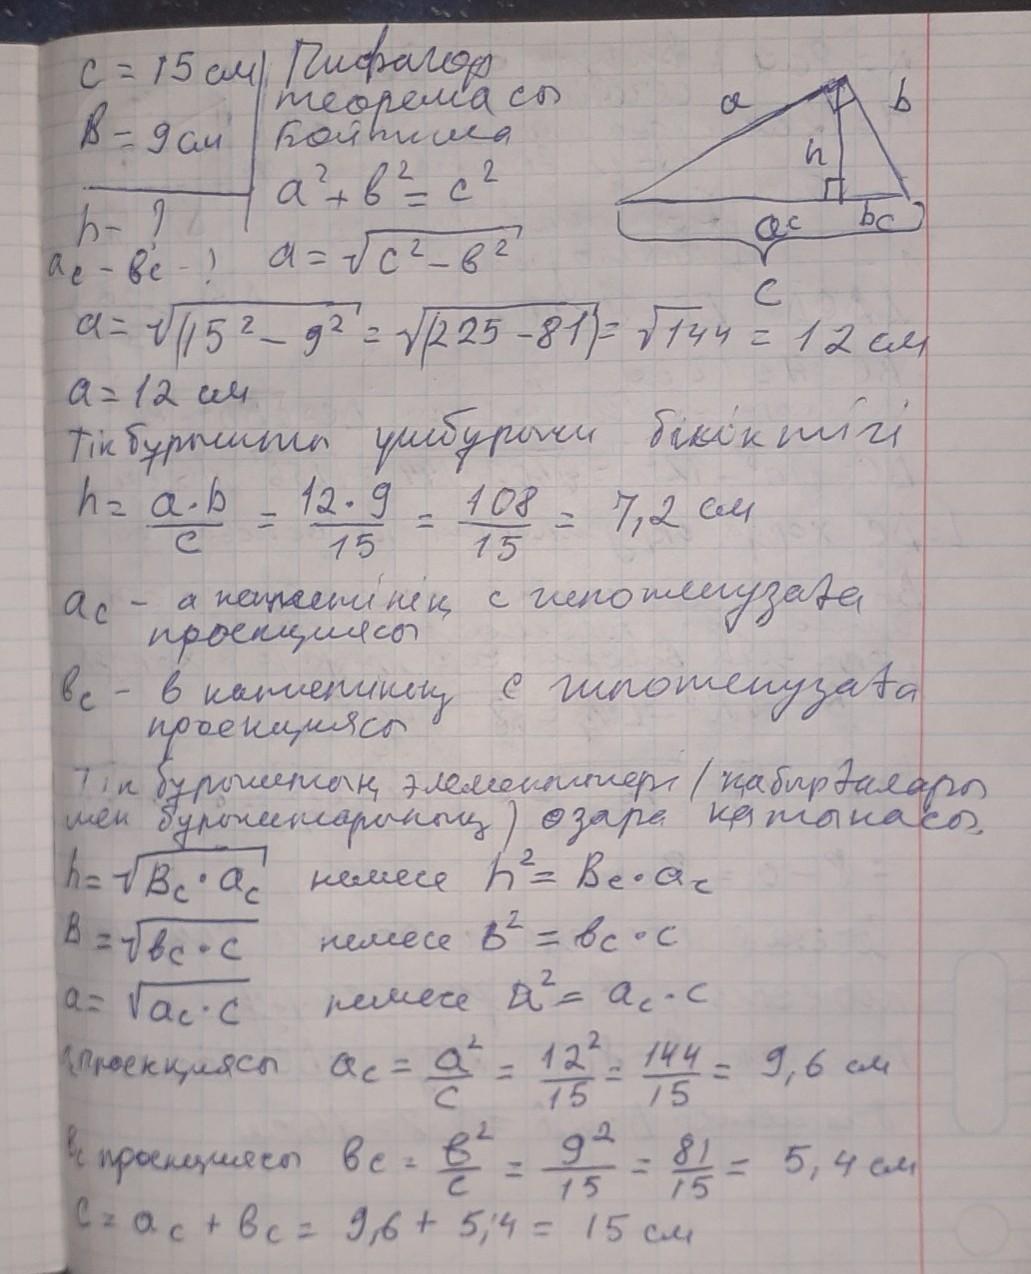 c = 15 см
Пифагор
теоремасы
B = 9 см
бойынша
a² + в² = c²
h - ?
aс - вс - ?
a = √c² - в²
a
b
h
aс
bс
c
a = √(15² - 9² = √(225 - 81) = √144 = 12 см
a = 12 см
Тікбұрышты үшбұрыш биіктігі
h = a·b/c = 12·9/15 = 108/15 = 7,2 см
aс - a катетінің c гипотенузаға
проекциясы
вс - в катетінің c гипотенузаға
проекциясы
Тік бұрыштың элементтері (қабырғалары
мен бұрыштарының) өзара қатынасы.
h = √Bс·aс немесе h² = Bс·aс
B = √вс·c немесе в² = вс·c
a = √aс·c немесе a² = aс·c
проекциясы aс = a²/c = 12²/15 = 144/15 = 9,6 см
вс проекциясы вс = в²/c = 9²/15 = 81/15 = 5,4 см
c = aс + вс = 9,6 + 5,4 = 15 см